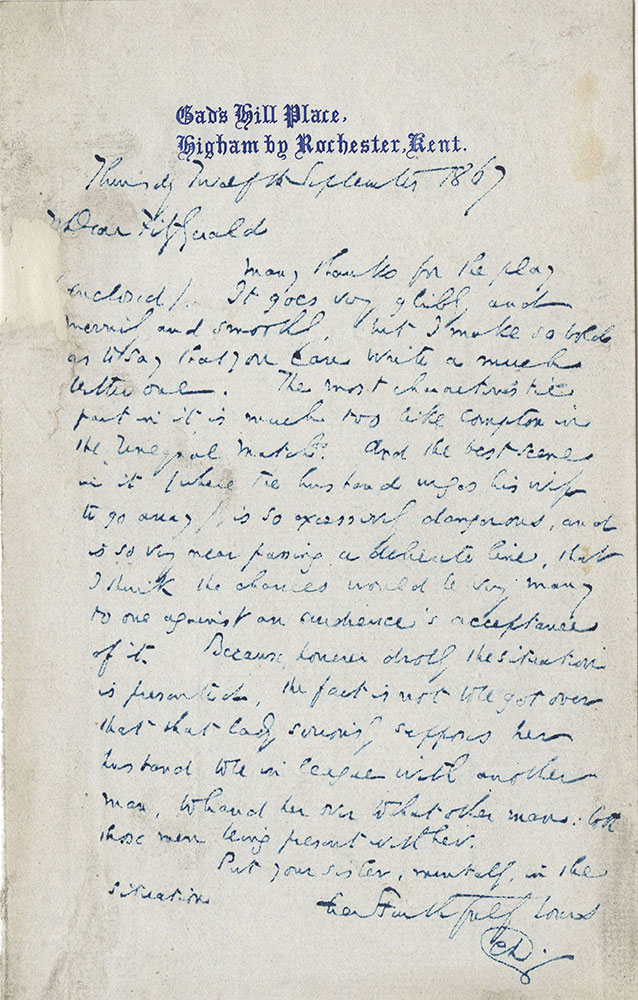 Gad's Hill Place,
Higham by Rochester, Kent.
Thursday Twelfth September 1867
Dear Fitzgerald
Many thanks for the play
(enclosed). It goes very glibly and
merrily and smoothly, but I make so bold
as to say that you can write a much
better one. The most characteristic
part in it is much too like Compton in
the Unequal Match. And the best scene
in it (where the husband urges his wife
to go away), is so excessively dangerous, and
is so very near passing a delicate line, that
I think the chances would be very many
to one against an audience's acceptance
of it. Because, however drolly the situation
is presented, the fact is not to be got over
that that lady seriously supposes her
husband to be in league with another
man, to hand her over to that other man: both
those men being present with her.
Put your sister, mentally, in the
situation
Ever Faithfully Yours
CD.